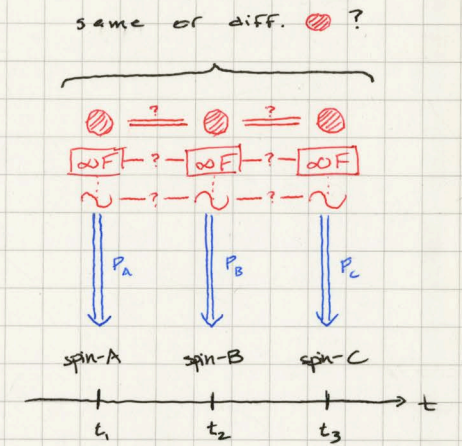 same or diff. ?
? ?
∞F — ? — ∞F — ? — ∞F
~ — ? — ~ — ? — ~
P_A P_B P_C
spin-A spin-B spin-C
t
t₁ t₂ t₃